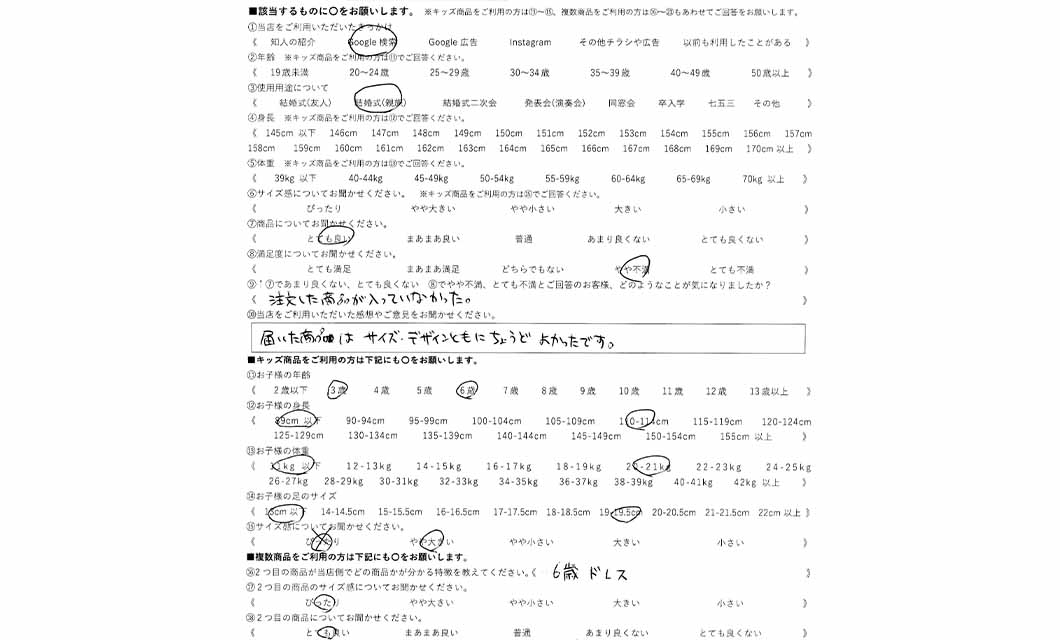 ■該当するものに〇をお願いします。 ※キッズ商品をご利用の方は⑪~⑮、複数商品をご利用の方は⑯~⑳もあわせてご回答をお願いします。
①当店をご利用いただいたきっかけ
《 知人の紹介 Google 検索 Google 広告 Instagram その他チラシや広告 以前も利用したことがある 》
②年齢 ※キッズ商品をご利用の方は⑪でご回答ください。
《 19歳未満 20~24歳 25~29歳 30~34歳 35~39歳 40~49歳 50歳以上 》
③使用用途について
《 結婚式(友人) 結婚式(親族) 結婚式二次会 発表会(演奏会) 同窓会 卒入学 七五三 その他 》
④身長 ※キッズ商品をご利用の方は⑫でご回答ください。
《 145cm 以下 146cm 147cm 148cm 149cm 150cm 151cm 152cm 153cm 154cm 155cm 156cm 157cm
158cm 159cm 160cm 161cm 162cm 163cm 164cm 165cm 166cm 167cm 168cm 169cm 170cm 以上 》
⑤体重 ※キッズ商品をご利用の方は⑬でご回答ください。
《 39kg 以下 40-44kg 45-49kg 50-54kg 55-59kg 60-64kg 65-69kg 70kg 以上 》
⑥サイズ感についてお聞かせください。 ※キッズ商品をご利用の方は⑮でご回答ください。
《 ぴったり やや大きい やや小さい 大きい 小さい 》
⑦商品についてお聞かせください。
《 とても良い まあまあ良い 普通 あまり良くない とても良くない 》
⑧満足度についてお聞かせください。
《 とても満足 まあまあ満足 どちらでもない やや不満 とても不満 》
⑨ ⑦であまり良くない、とても良くない ⑧でやや不満、とても不満とご回答のお客様、どのようなことが気になりましたか?
《 注文した商品が入っていなかった。 》
⑩当店をご利用いただいた感想やご意見をお聞かせください。
届いた商品は サイズ・デザインともにちょうど よかったです。
■キッズ商品をご利用の方は下記にも〇をお願いします。
⑪お子様の年齢
《 2歳以下 3歳 4歳 5歳 6歳 7歳 8歳 9歳 10歳 11歳 12歳 13歳以上 》
⑫お子様の身長
《 89cm 以下 90-94cm 95-99cm 100-104cm 105-109cm 110-114cm 115-119cm 120-124cm
125-129cm 130-134cm 135-139cm 140-144cm 145-149cm 150-154cm 155cm 以上 》
⑬お子様の体重
《 11kg 以下 12-13kg 14-15kg 16-17kg 18-19kg 20-21kg 22-23kg 24-25kg
26-27kg 28-29kg 30-31kg 32-33kg 34-35kg 36-37kg 38-39kg 40-41kg 42kg 以上 》
⑭お子様の足のサイズ
《 13cm 以下 14-14.5cm 15-15.5cm 16-16.5cm 17-17.5cm 18-18.5cm 19-19.5cm 20-20.5cm 21-21.5cm 22cm 以上 》
⑮サイズ感についてお聞かせください。
《 ぴったり やや大きい やや小さい 大きい 小さい 》
■複数商品をご利用の方は下記にも〇をお願いします。
⑯2つ目の商品が当店側でどの商品かが分かる特徴を教えてください。《 6歳 ドレス 》
⑰2つ目の商品のサイズ感についてお聞かせください。
《 ぴったり やや大きい やや小さい 大きい 小さい 》
⑱2つ目の商品についてお聞かせください。
《 とても良い まあまあ良い 普通 あまり良くない とても良くない 》